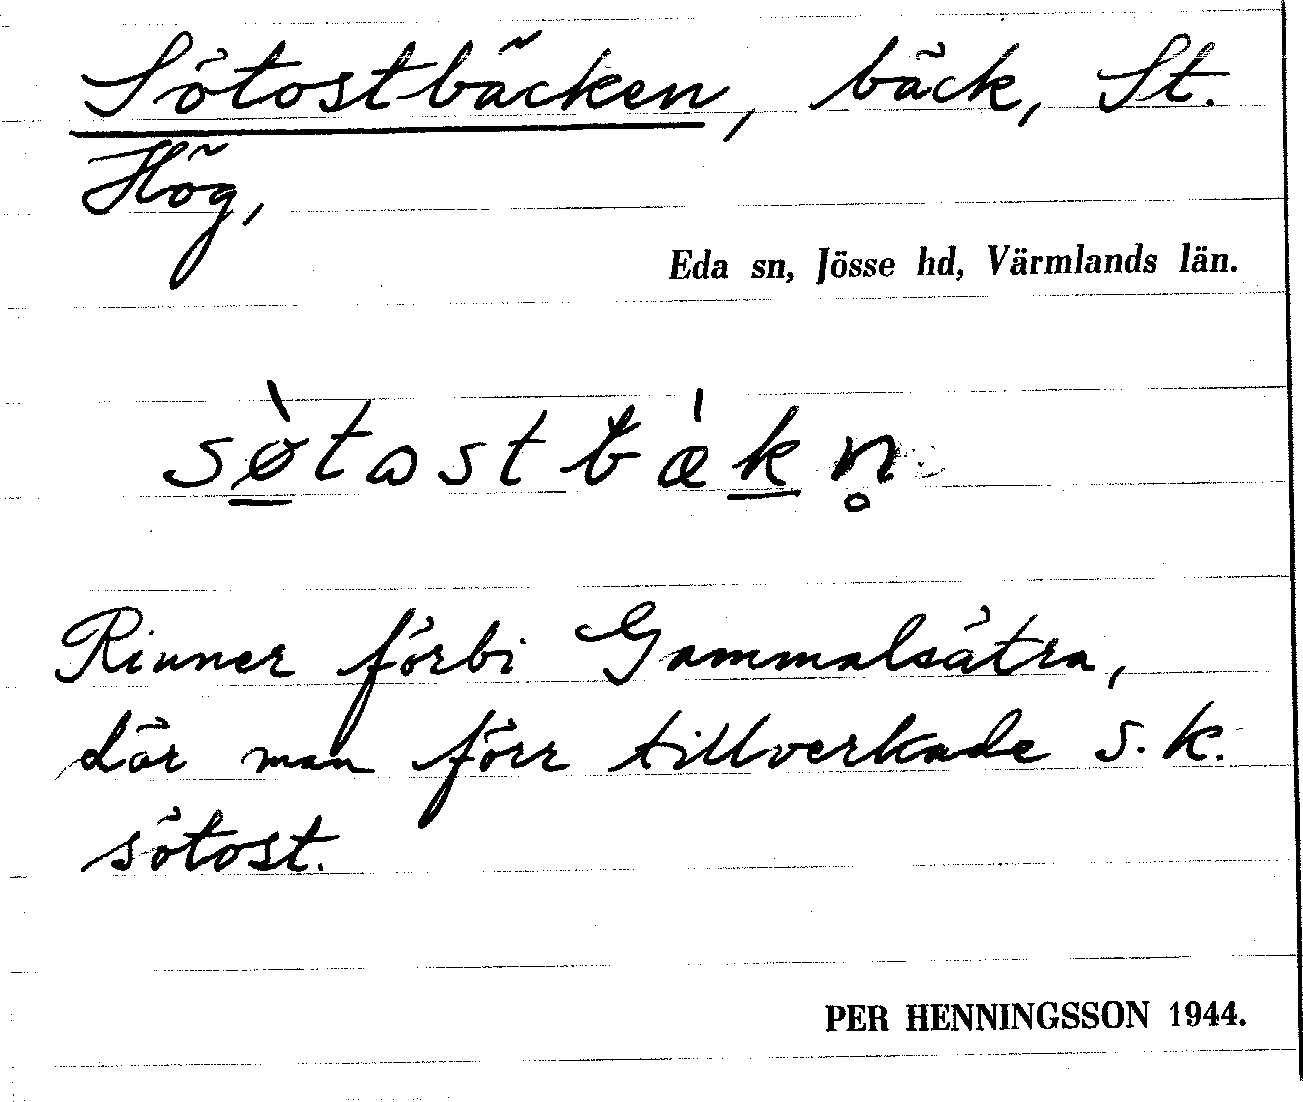 Sötostbäcken, bäck, St.
Hög,
Eda sn, Jösse hd, Värmlands län.
sø̀tostbæ̍kn̥
Rinner förbi Gammalsätra,
där man förr tillverkade s.k.
sötost.
PER HENNINGSSON 1944.